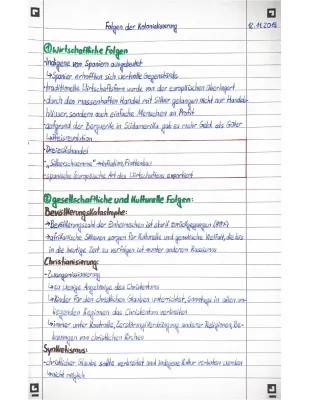 Folgen der Kolonialisierung 12.11.2018
① Wirtschaftliche Folgen
- Indigene von Spaniern ausgebeutet
↳ Spanier erhofften sich wertvolle Gegenstände
- traditionelle Wirtschaftsform wurde von der europäischen überlagert
- durch den massenhaften Handel mit Silber gelangen nicht nur Handels-
häuser, sondern auch einfache Menschen an Profit
- aufgrund der Bergwerke in Südamerika gab es mehr Geld als Güter
↳ Preisrevolution
- Dreieckshandel
- "Silberschwemme" → Inflation
- spanische Europäische Art des Wirtschaftens exportiert
② gesellschaftliche und Kulturelle Folgen:
Bevölkerungskatastrophe:
↳ Bevölkerungszahl der Einheimischen ist stark zurückgegangen
↳ afrikanische Sklaven sorgen für kulturelle und genetische Vielfalt, die bis
in die heutige Zeit zu verfolgen ist unter anderem Rassismus
Christianisierung:
- Zwangsmissionierung
↳ zu wenige Angehörige des Christentums
↳ Kinder für den christlichen Glauben unterrichtet, Sonntags in allen um-
liegenden Regionen das Christentum verbreiten
↳ immer unter Kontrolle, Zerstörung/Verdrängung anderer Religionen, Be-
von christlichen Kirchen
Synkretismus:
- christlicher Glaube sollte verbreitet und indigene Kultur verboten werden
↳ nicht möglich